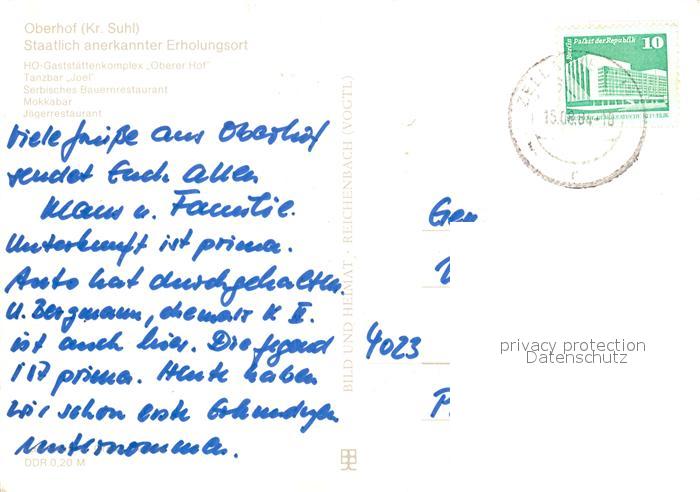 Oberhof (Kr. Suhl)
Staatlich anerkannter Erholungsort
HO-Gaststättenkomplex „Oberer Hof“
Tanzbar „Joel“
Serbisches Bauernrestaurant
Mokkabar
Jägerrestaurant
Viele Grüße aus Oberhof
sendet Euch allen
Klaus u. Familie.
Unterkunft ist prima.
Auto hat durchgehalten.
U. Bergmann, ehemals K II.
ist auch hier. Die Gegend
ist prima. Heute haben
wir schon erste Erkundungen
unternommen.
DDR 0,20 M
BILD UND HEIMAT · REICHENBACH (VOGTL)
Berlin Palast der Republik
10
ZELLA
15.08.84-18
4023
privacy protection
Datenschutz